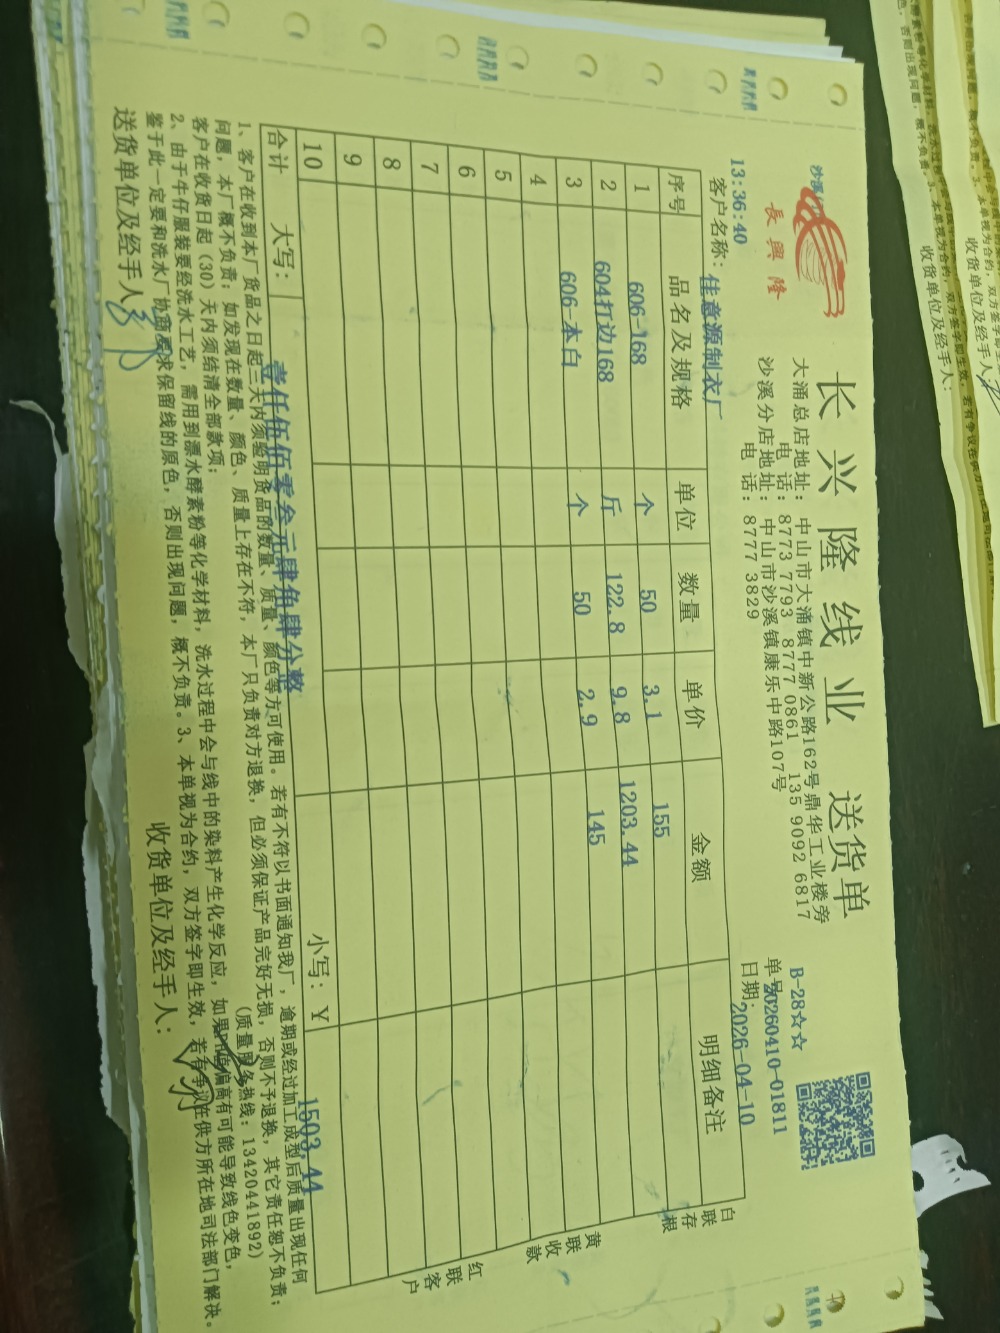 长兴隆线业 送货单
長興隆
大涌总店地址：中山市大涌镇中新公路162号鼎华工业楼旁
电话：8773 7793 8777 0861 135 9092 6817
沙溪分店地址：中山市沙溪镇康乐中路107号
电话：8777 3829
B-28☆☆
单号20260410-01811
日期：2026-04-10
13:36:40
客户名称：佳意源制衣厂
序号 品名及规格 单位 数量 单价 金额 明细备注
1 606-168 个 50 3.1 155
2 604打边168 斤 122.8 9.8 1203.44
3 606-本白 个 50 2.9 145
4
5
6
7
8
9
10
合计 大写：壹仟伍佰零叁元肆角肆分整 小写：Y 1503.44
白联存根
黄联收款
红联客户
1、客户在收到本厂货品之日起三天内须验明货品的数量、质量、颜色等方可使用。若有不符以书面通知我厂，逾期或经过加工成型后质量出现任何
问题，本厂概不负责；如发现在数量、颜色、质量上存在不符，本厂只负责对方退换，但必须保证产品完好无损，否则不予退换，其它责任恕不负责；
客户在收货日起（30）天内须结清全部款项；
（质量服务热线：13420441892）
2、由于牛仔服装要经洗水工艺，需用到漂水酵素粉等化学材料，洗水过程中会与线中的染料产生化学反应，如果PH值偏高有可能导致线色变色，
鉴于此一定要和洗水厂协商要求保留线的原色，否则出现问题，概不负责。3、本单视为合约，双方签字即生效，若有争议在供方所在地司法部门解决。
送货单位及经手人：
收货单位及经手人：
收货单位及经手人：
收货单位及经手人：